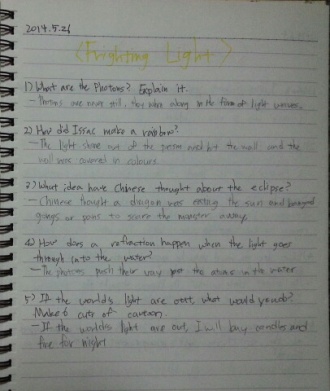 2014.5.26
<Frighting Light>
1) What are the Photons? Explain it.
- Photons are never still, they move along in the form of light waves.
2) How did Issac make a rainbow?
- The light shone out of the prism and hit the wall and the
wall was covered in colours
3) What idea have Chinese thought about the eclipse?
- Chinese thought a dragon was eating the sun and banged
gongs or pans to scare the monster away.
4) How does a refraction happen when the light goes
through into the water?
- The photons push their way past the atoms in the water
5) If the worlds light are out, what would you do?
Make 6 cuts of cartoon.
- If the worlds light are out, I will buy candles and
fire for night